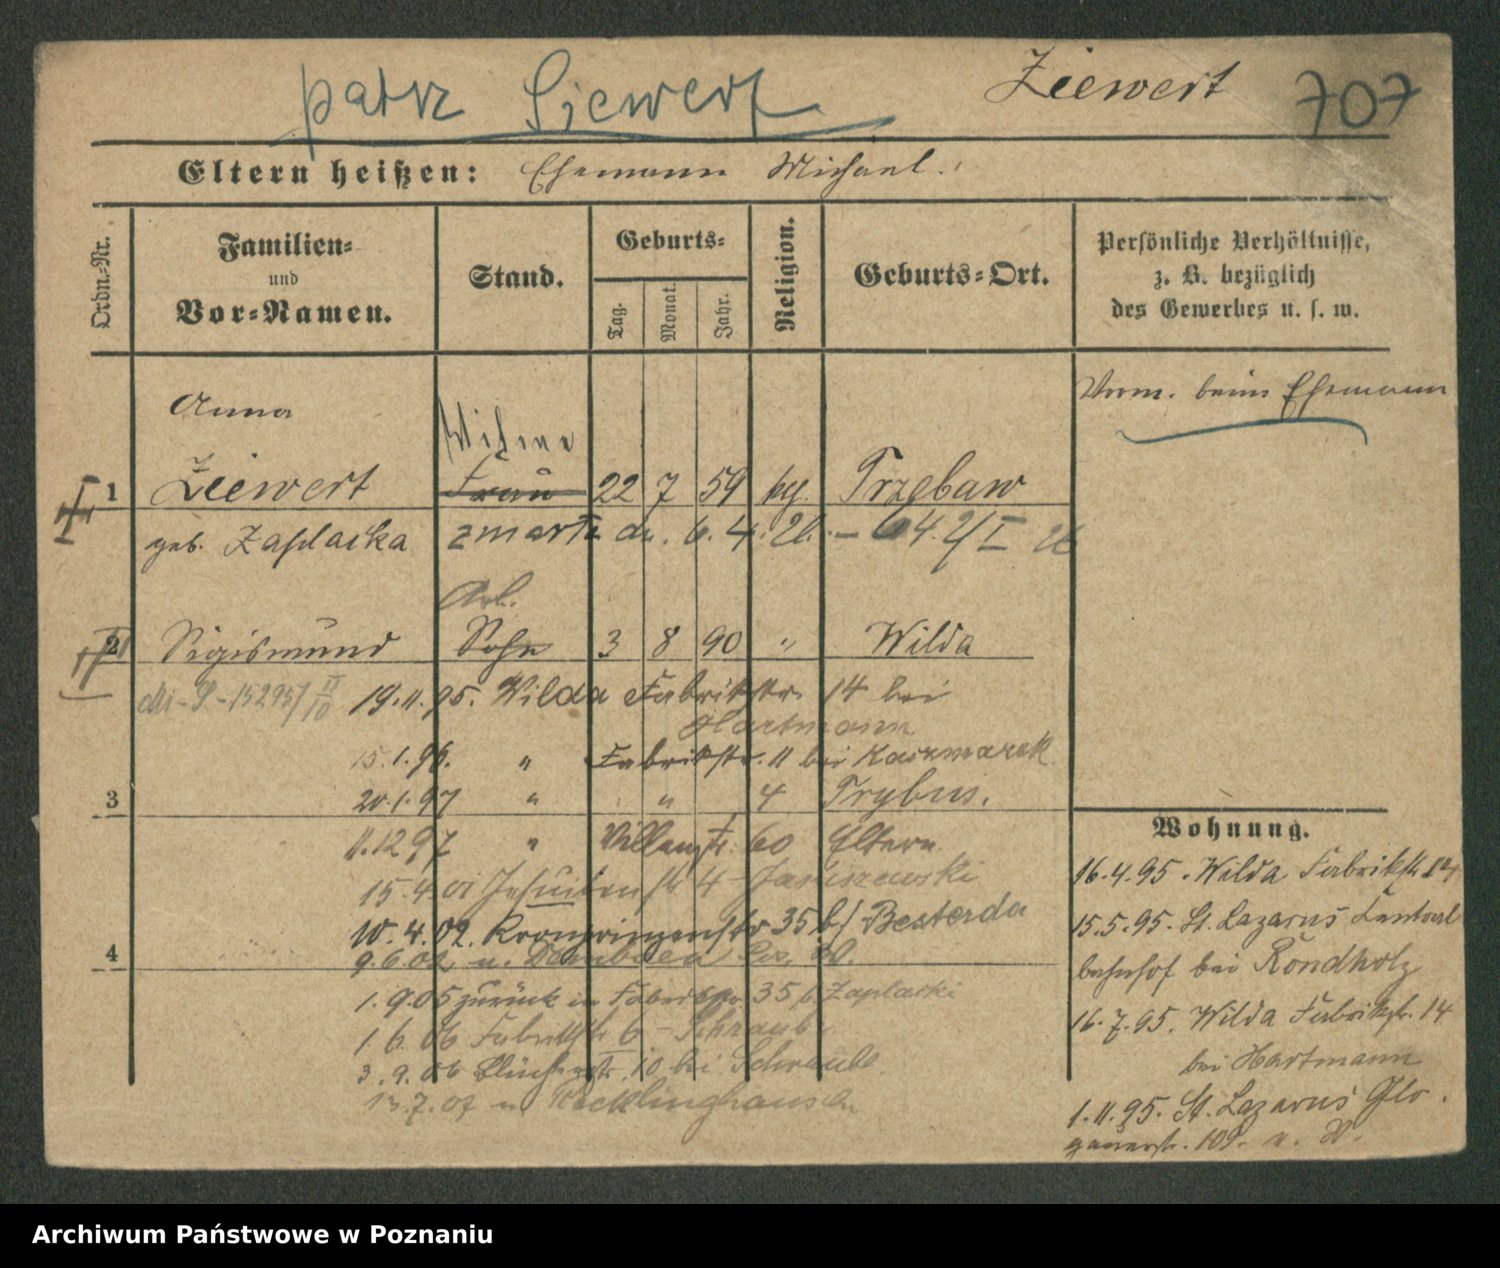 patrz Siewert
Ziewert 707
Eltern heißen: Ehemann Michael.
Ordn.-Nr.
Familien-
und
Vor-Namen.
Stand.
Geburts-
Tag.
Monat.
Jahr.
Religion.
Geburts-Ort.
Persönliche Verhältnisse,
z. B. bezüglich
des Gewerbes u. s. w.
Vorm. beim Ehemann
Anna
Witwe
1 Ziewert Frau 22 7 59 kg. Trzebaw
geb. Zaplacka zmarła dn. 6. 4. 26.
Arb.
2 Sigismund Sohn 3 8 90 " Wilda
19.11.95. Wilda Fabrikstr. 14 bei
Hartmann
15.1.96. " Fabrikstr. 11 bei Kaczmarek
3
20.1.97 " " 4 Trybus.
11.12.97 " Villenstr. 60 Eltern
15.4.01 Jesuitenstr. 4 Janiszewski
10.4.02. Kronprinzenstr 35 b/ Besterda
4
9.6.02 n.
1.9.05 zurück in Fabrikstr. 35 b. Zaplacki
1.6.06 Fabrikstr. 6 - Schraube
3.9.06 Blücherstr. 10 bei Schraube.
13.7.07 n. Recklinghausen
Wohnung.
16.4.95. Wilda Fabrikstr. 14
15.5.95. St. Lazarus
bahnhof bei Rondholz
16.7.95. Wilda Fabrikstr. 14
bei Hartmann
1.11.95. St. Lazarus Glo-
gauerstr. 109.
Archiwum Państwowe w Poznaniu